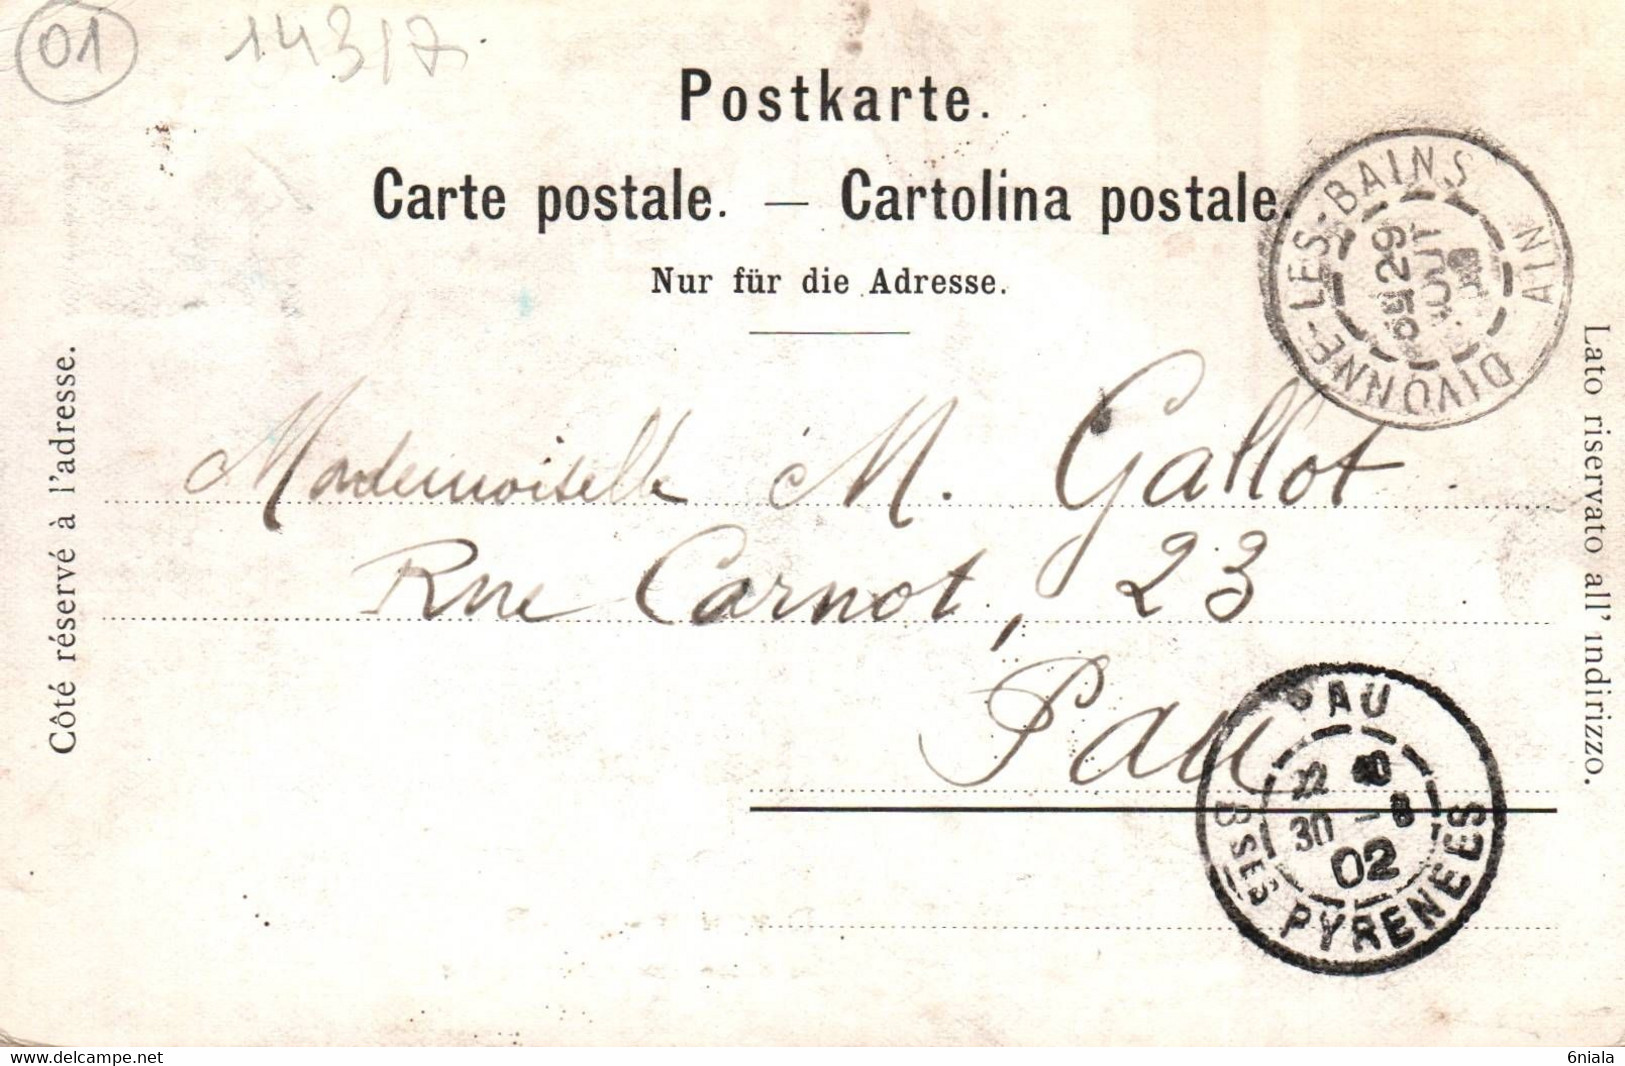 01
143/7
Postkarte.
Carte postale. — Cartolina postale.
Nur für die Adresse.
Côté réservé à l'adresse.
Lato riservato all' indirizzo.
DIVONNE-LES-BAINS AIN
29
AOUT
Mademoiselle M. Gallot
Rue Carnot, 23
Pau
PAU
22 40
30 - 8
02
BSES PYRENEES
www.delcampe.net
6niala